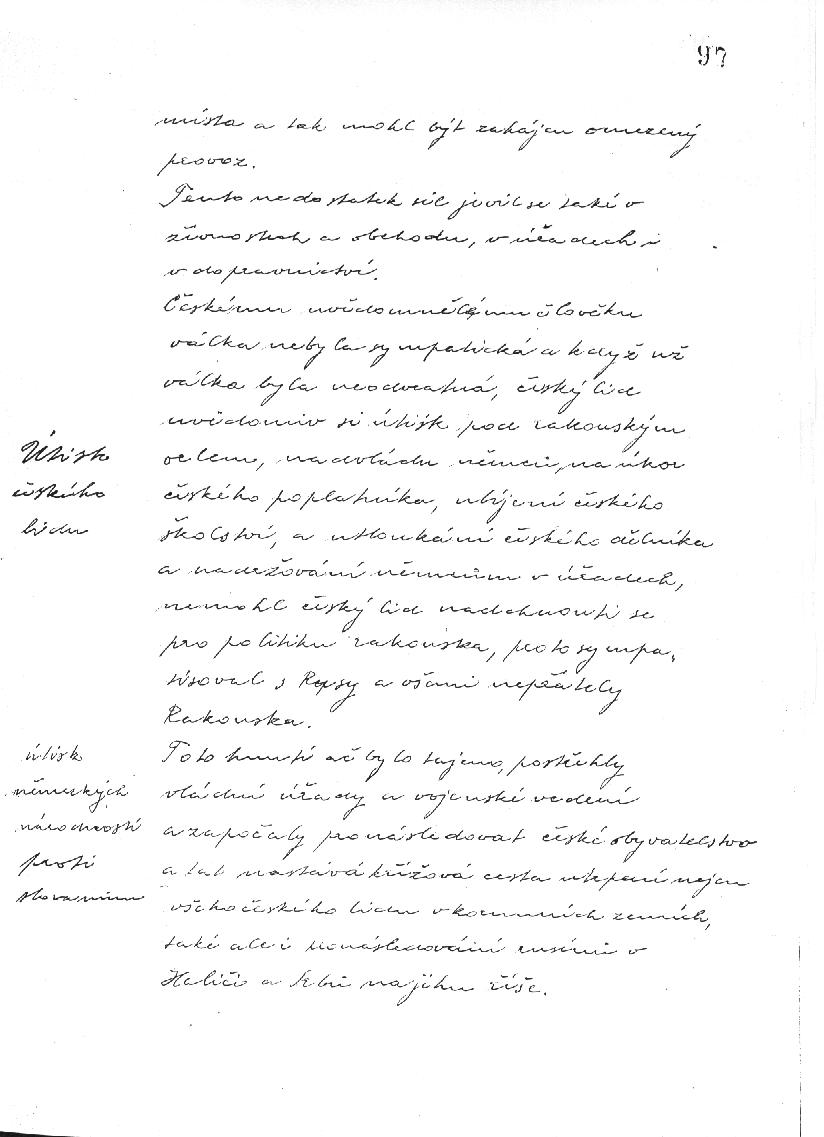 97
místa a tak mohl být zahájen omezený
provoz.
Tento nedostatek sil jevil se také v
živnostech a obchodu, v úřadech i
v dopravnictví.
Českému uvědomnělému člověku
válka nebyla sympatická a když už
válka byla neodvratná, český lid
uvědomiv si útisk pod rakouským
orlem, nadvládu němců, na úkor
českého poplatníka, ubíjení českého
školství, a utloukání českého dělníka
a nadržování němcům v úřadech,
nemohl český lid nadchnouti se
pro politiku rakouska, proto sympa-
tisoval s Rusy a všemi nepřátely
Rakouska.
Útisk
českého
lidu
Toto hnutí ač bylo tajeno, postřehly
vládní úřady a vojenské vedení
a započaly pronásledovat české obyvatelstvo
a tak nastává křížová cesta utrpení nejen
všeho českého lidu v korunních zemích,
také ale i pronásledování rusínů v
Haliči a Srbů na jihu říše.
útisk
německých
národností
proti
slovanům